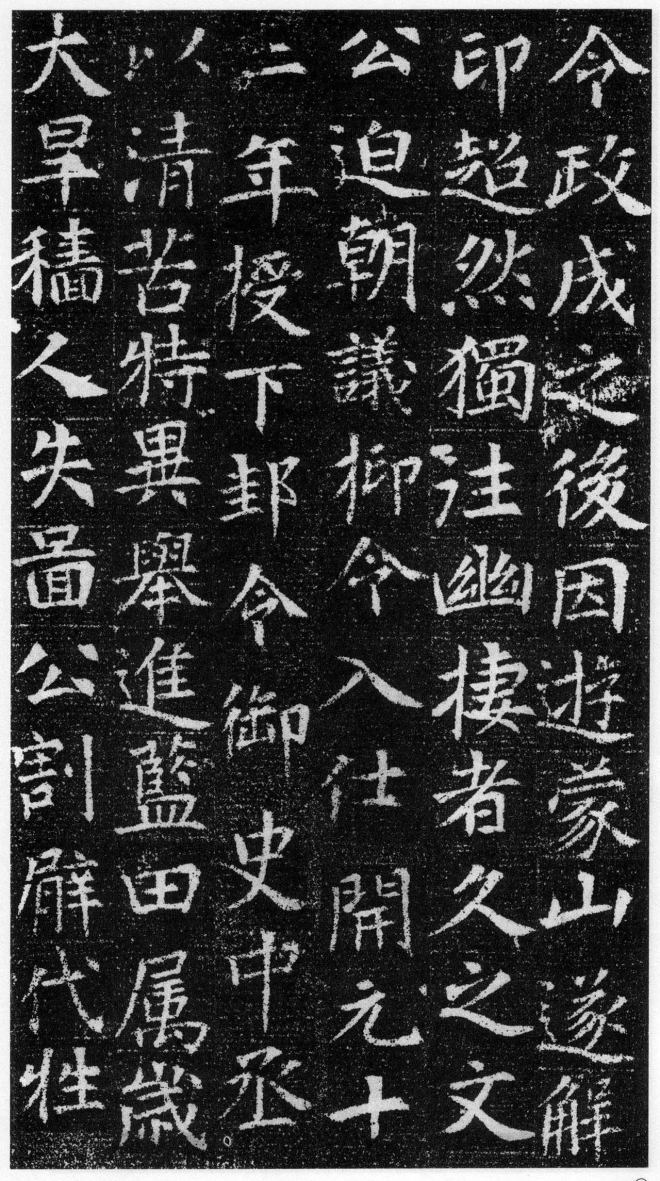 令政成之後因遊蒙山遂解
印超然獨往幽棲者久之文
公迫朝議抑令入仕開元十
二年授下邽令御史中丞
以清苦特異舉進藍田属歲
大旱穡人失啚公割嬖代牲